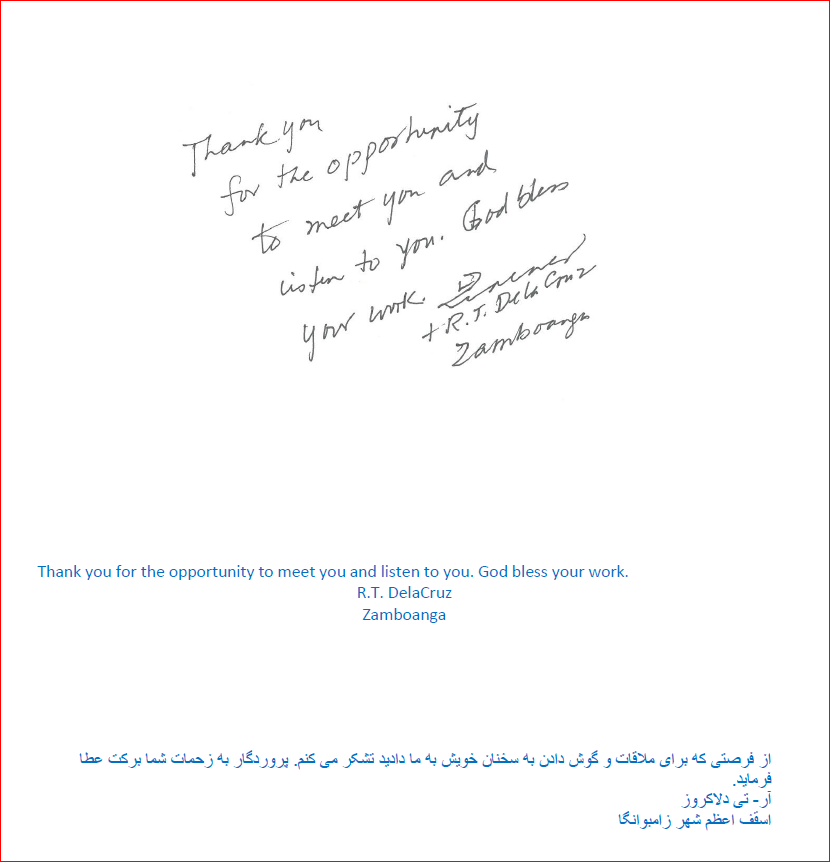 Thank you
for the opportunity
to meet you and
listen to you. God bless
your work.
+ R.T. DelaCruz
Zamboanga
Thank you for the opportunity to meet you and listen to you. God bless your work.
R.T. DelaCruz
Zamboanga
از فرصتی که برای ملاقات و گوش دادن به سخنان خویش به ما دادید تشکر می کنم. پروردگار به زحمات شما برکت عطا
فرماید.
آر- تی دلاکروز
اسقف اعظم شهر زامبوانگا